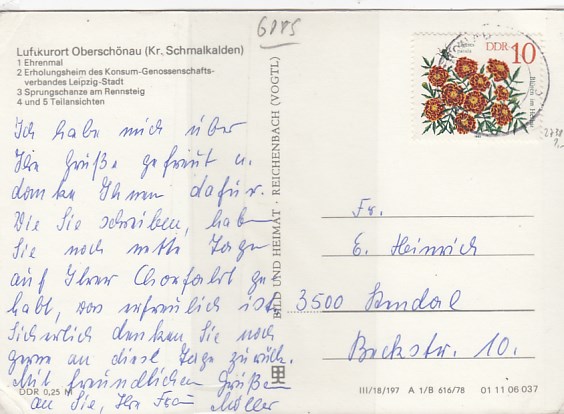 6185
Luftkurort Oberschönau (Kr. Schmalkalden)
1 Ehrenmal
2 Erholungsheim des Konsum-Genossenschafts-
verbandes Leipzig-Stadt
3 Sprungschanze am Rennsteig
4 und 5 Teilansichten
Ich habe mich über
Ihre Grüße gefreut u.
danke Ihnen dafür.
Wie Sie schreiben, haben
Sie noch nette Tage
auf Ihrer Chorfahrt ge
habt, was erfreulich ist.
Sicherlich denken Sie noch
gern an diese Tage zurück.
Mit freundlichen Grüßen
an Sie, Ihre Frau Müller
DDR 0,25 M
BILD UND HEIMAT · REICHENBACH (VOGTL)
DDR 10
Blumen im Herbst
Fr.
E. Heinrich
3500 Stendal
Beckstr. 10.
III/18/197 A 1/B 616/78 01 11 06 037